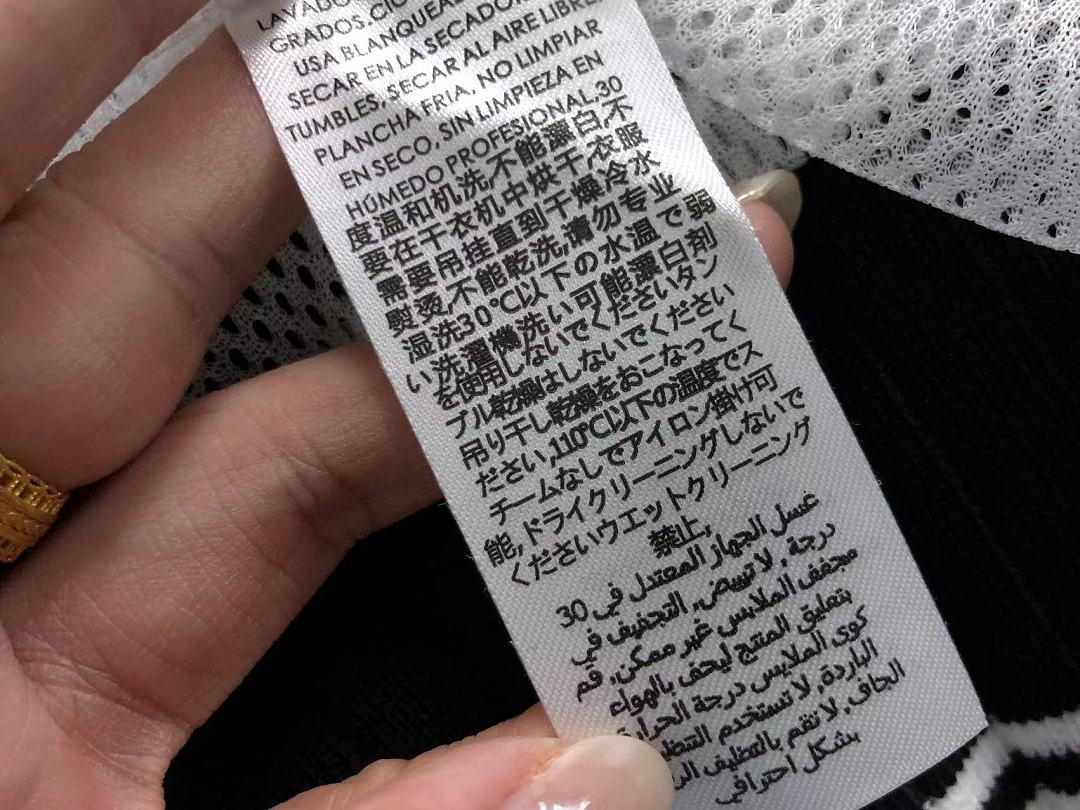 LAVADO
GRADOS CIO
USA BLANQUEAD
SECAR EN LA SECADOR
TUMBLES, SECAR AL AIRE LIBRE
PLANCHA FRIA, NO LIMPIAR
EN SECO, SIN LIMPIEZA EN
HÚMEDO PROFESIONAL,30
度温和机洗,不能漂白,不
要在干衣机中烘干,衣服
需要吊挂直到干燥冷水
熨烫,不能乾洗,请勿专业
湿洗30℃以下の水温で弱
い洗濯機洗い可能漂白剤
を使用しないでくださいタン
ブル乾燥はしないでください
吊り干し乾燥をおこなってく
ださい,110℃以下の温度でス
チームなしでアイロン掛け可
能,ドライクリーニングしないで
くださいウエットクリーニング
禁止,
غسل الجهاز المعتدل في 30
درجة, لا تبييض, التجفيف في
مجفف الملابس غير ممكن, قم
بتعليق المنتج ليجف بالهواء
كوى الملابس درجة الحرارة
الباردة, لا تستخدم التنظي
الجاف, لا تقم بالتنظيف الر
بشكل احترافي